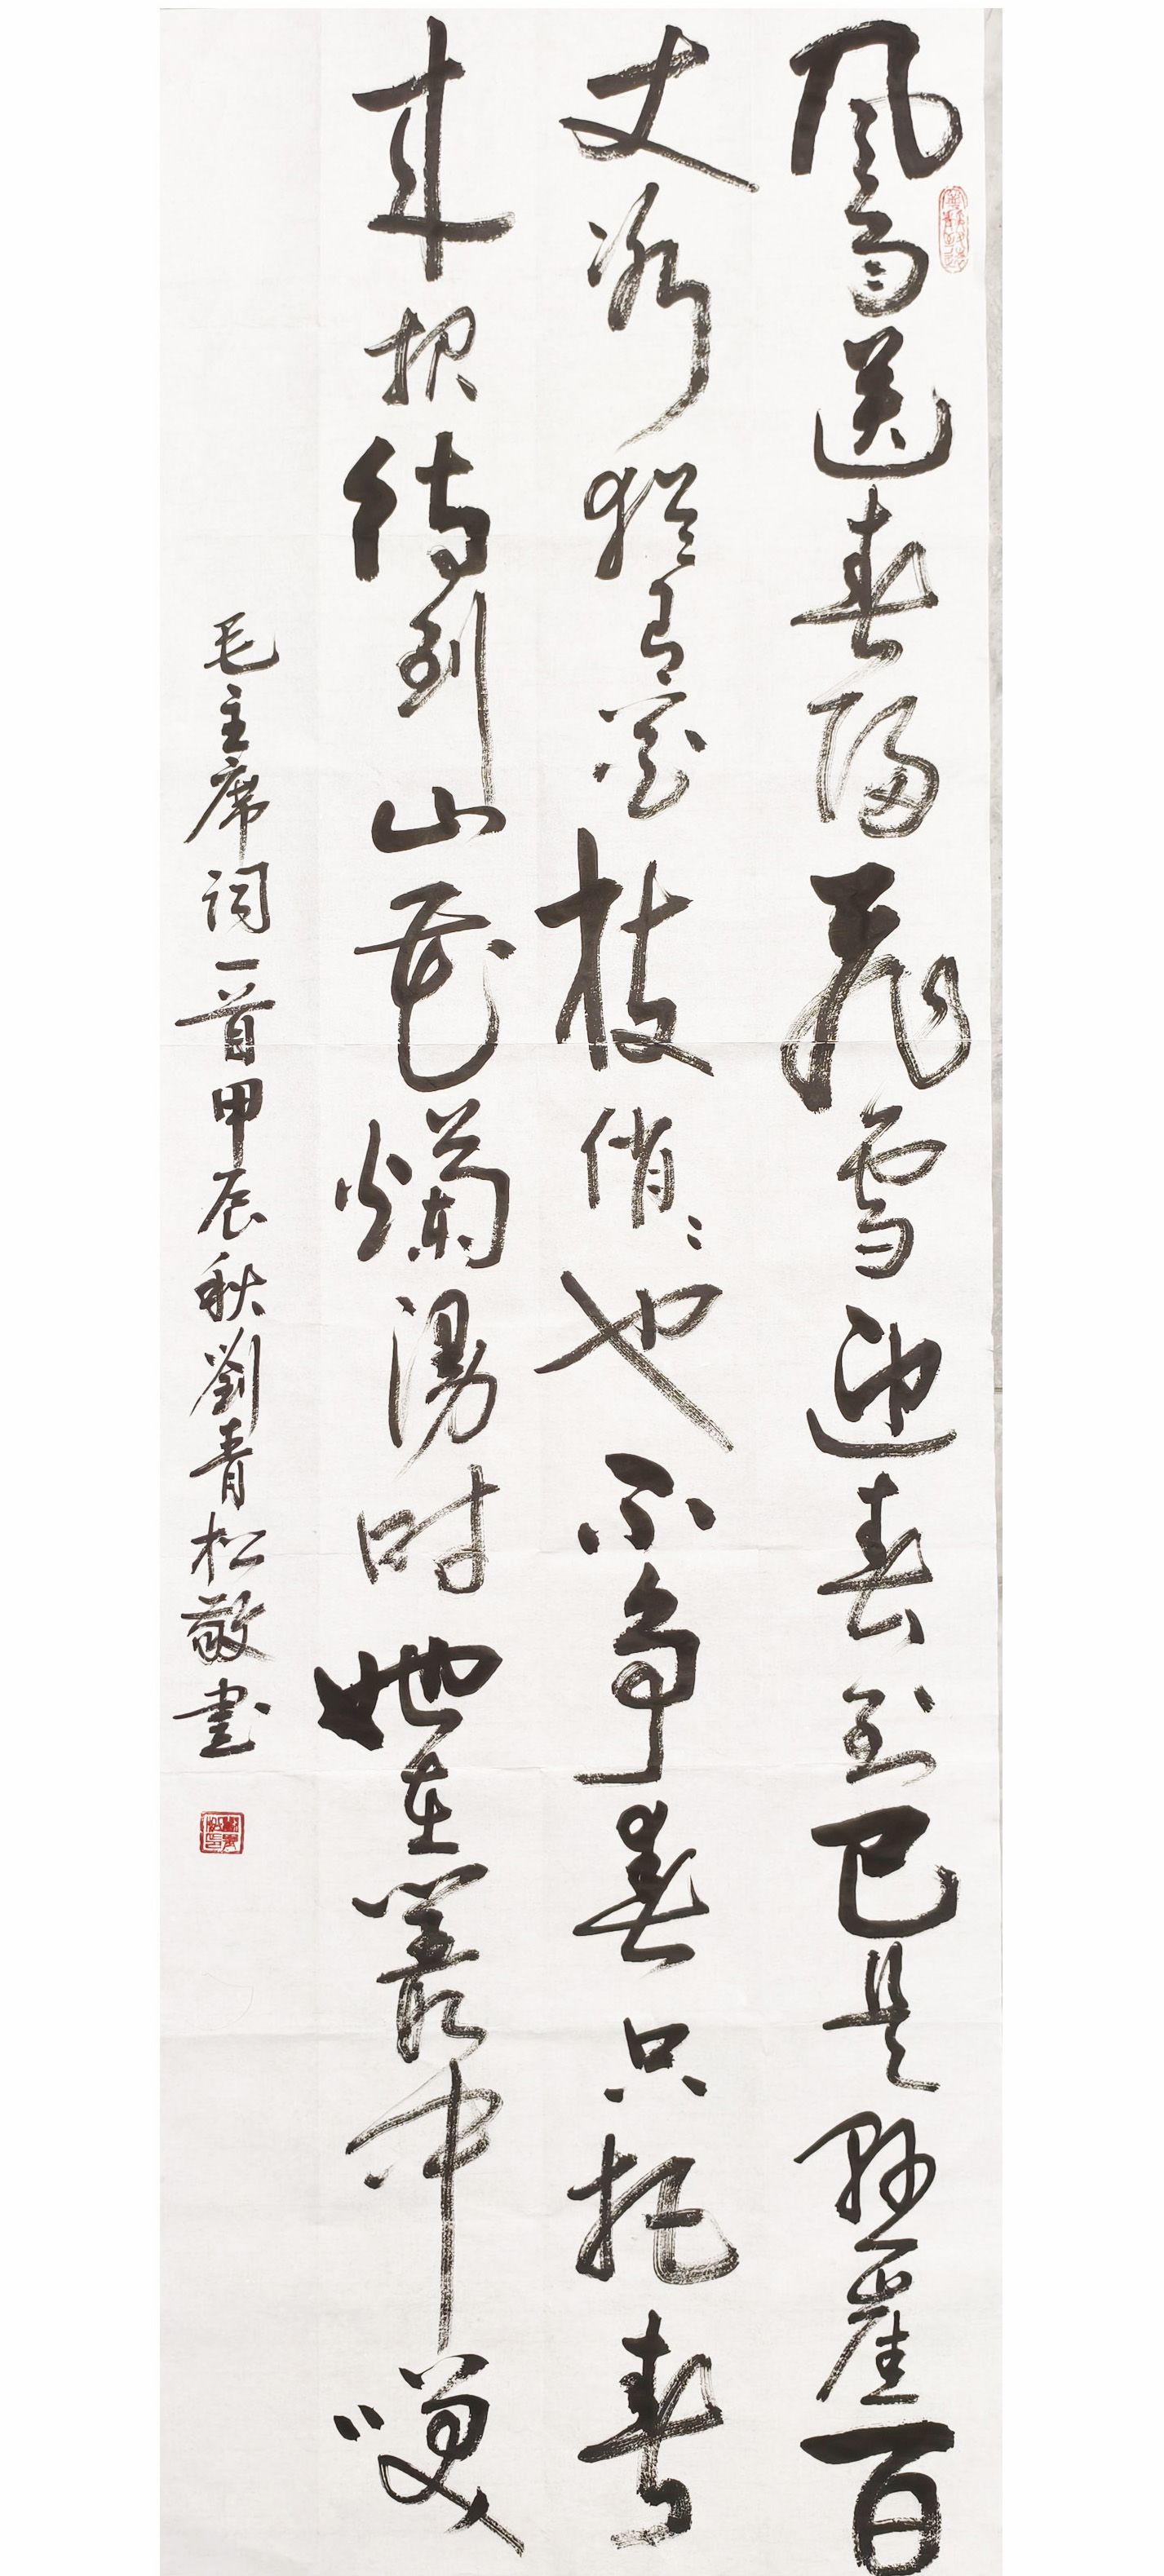 風雨送春歸飛雪迎春到已是懸崖百
丈冰猶有花枝俏〻也不争春只把春
来报待到山花爛漫时她在叢中笑
毛主席词一首甲辰秋劉青松敬书